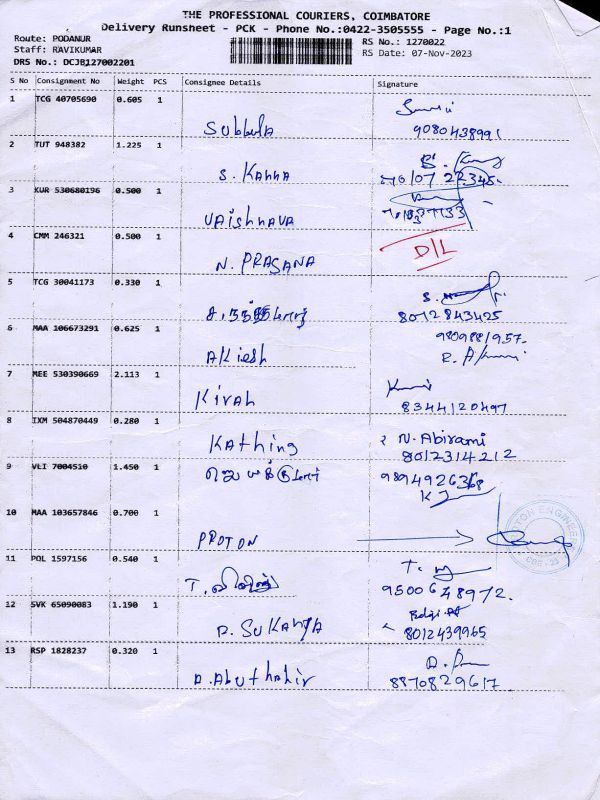 THE PROFESSIONAL COURIERS, COIMBATORE
Delivery Runsheet - PCK - Phone No.:0422-3505555 - Page No.:1
Route: PODANUR
Staff: RAVIKUMAR
DRS No.: DCJB127002201
RS No.: 1270022
RS Date: 07-Nov-2023
S No Consignment No Weight PCS Consignee Details Signature
1 TCG 40705690 0.605 1
Subbula 9080438991
2 TUT 948382 1.225 1
S. Kanna
3 KUR 530680196 0.500 1
Vaishnava
4 CMM 246321 0.500 1
N. PRASANA D/L
5 TCG 30041173 0.330 1
8012843425
6 MAA 106673291 0.625 1
AKiesh
7 MEE 530390669 2.113 1
Kirah 8344120497
8 IXM 504870449 0.280 1
Kathing N. Abirami
8012314212
9 VLI 7004510 1.450 1
10 MAA 103657846 0.700 1
PROTON
11 POL 1597156 0.540 1
9500648972.
12 SVK 65090083 1.190 1
D. SUKANYA 8012439965
13 RSP 1828237 0.320 1
A. Abuthahir 8870829617